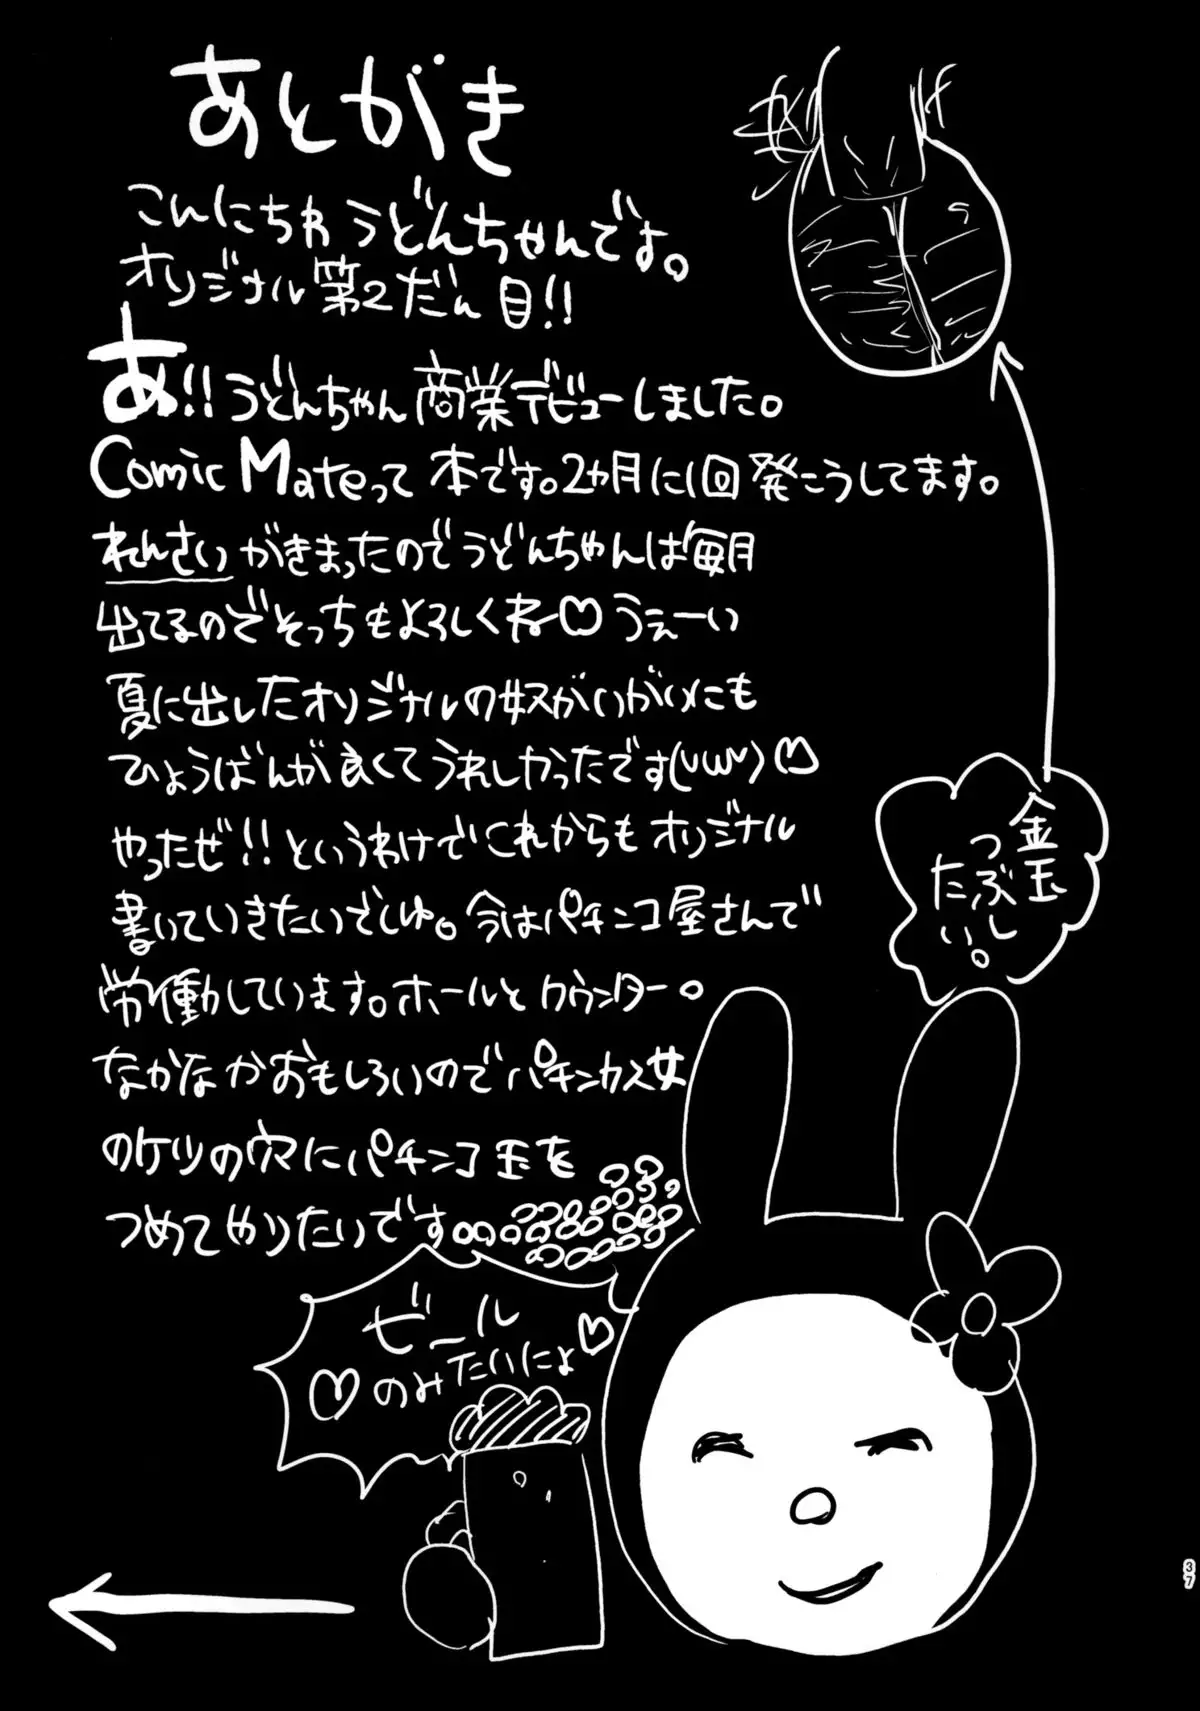 あとがき
こんにちわ うどんちゃんです。
オリジナル第2だん目!!
あ!!うどんちゃん商業デビューしました。
Comic Mateって本です。2ヵ月に1回発こうしてます。
れんさいがきまったのでうどんちゃんは毎月
出てるのでそっちもよろしくね♡うぇーい
夏に出したオリジナルの奴がいがいにも
ひょうばんが良くてうれしかったです(˘ω˘)♡
やったぜ!!というわけでこれからもオリジナル
書いていきたいでしゅ。今はパチンコ屋さんで
労働しています。ホールとカウンター。
なかなかおもしろいのでパチンカス女
のケツの穴にパチンコ玉を
つめてやりたいです。
金玉
つぶし
たい。
ビール
♡のみたいにょ♡
37